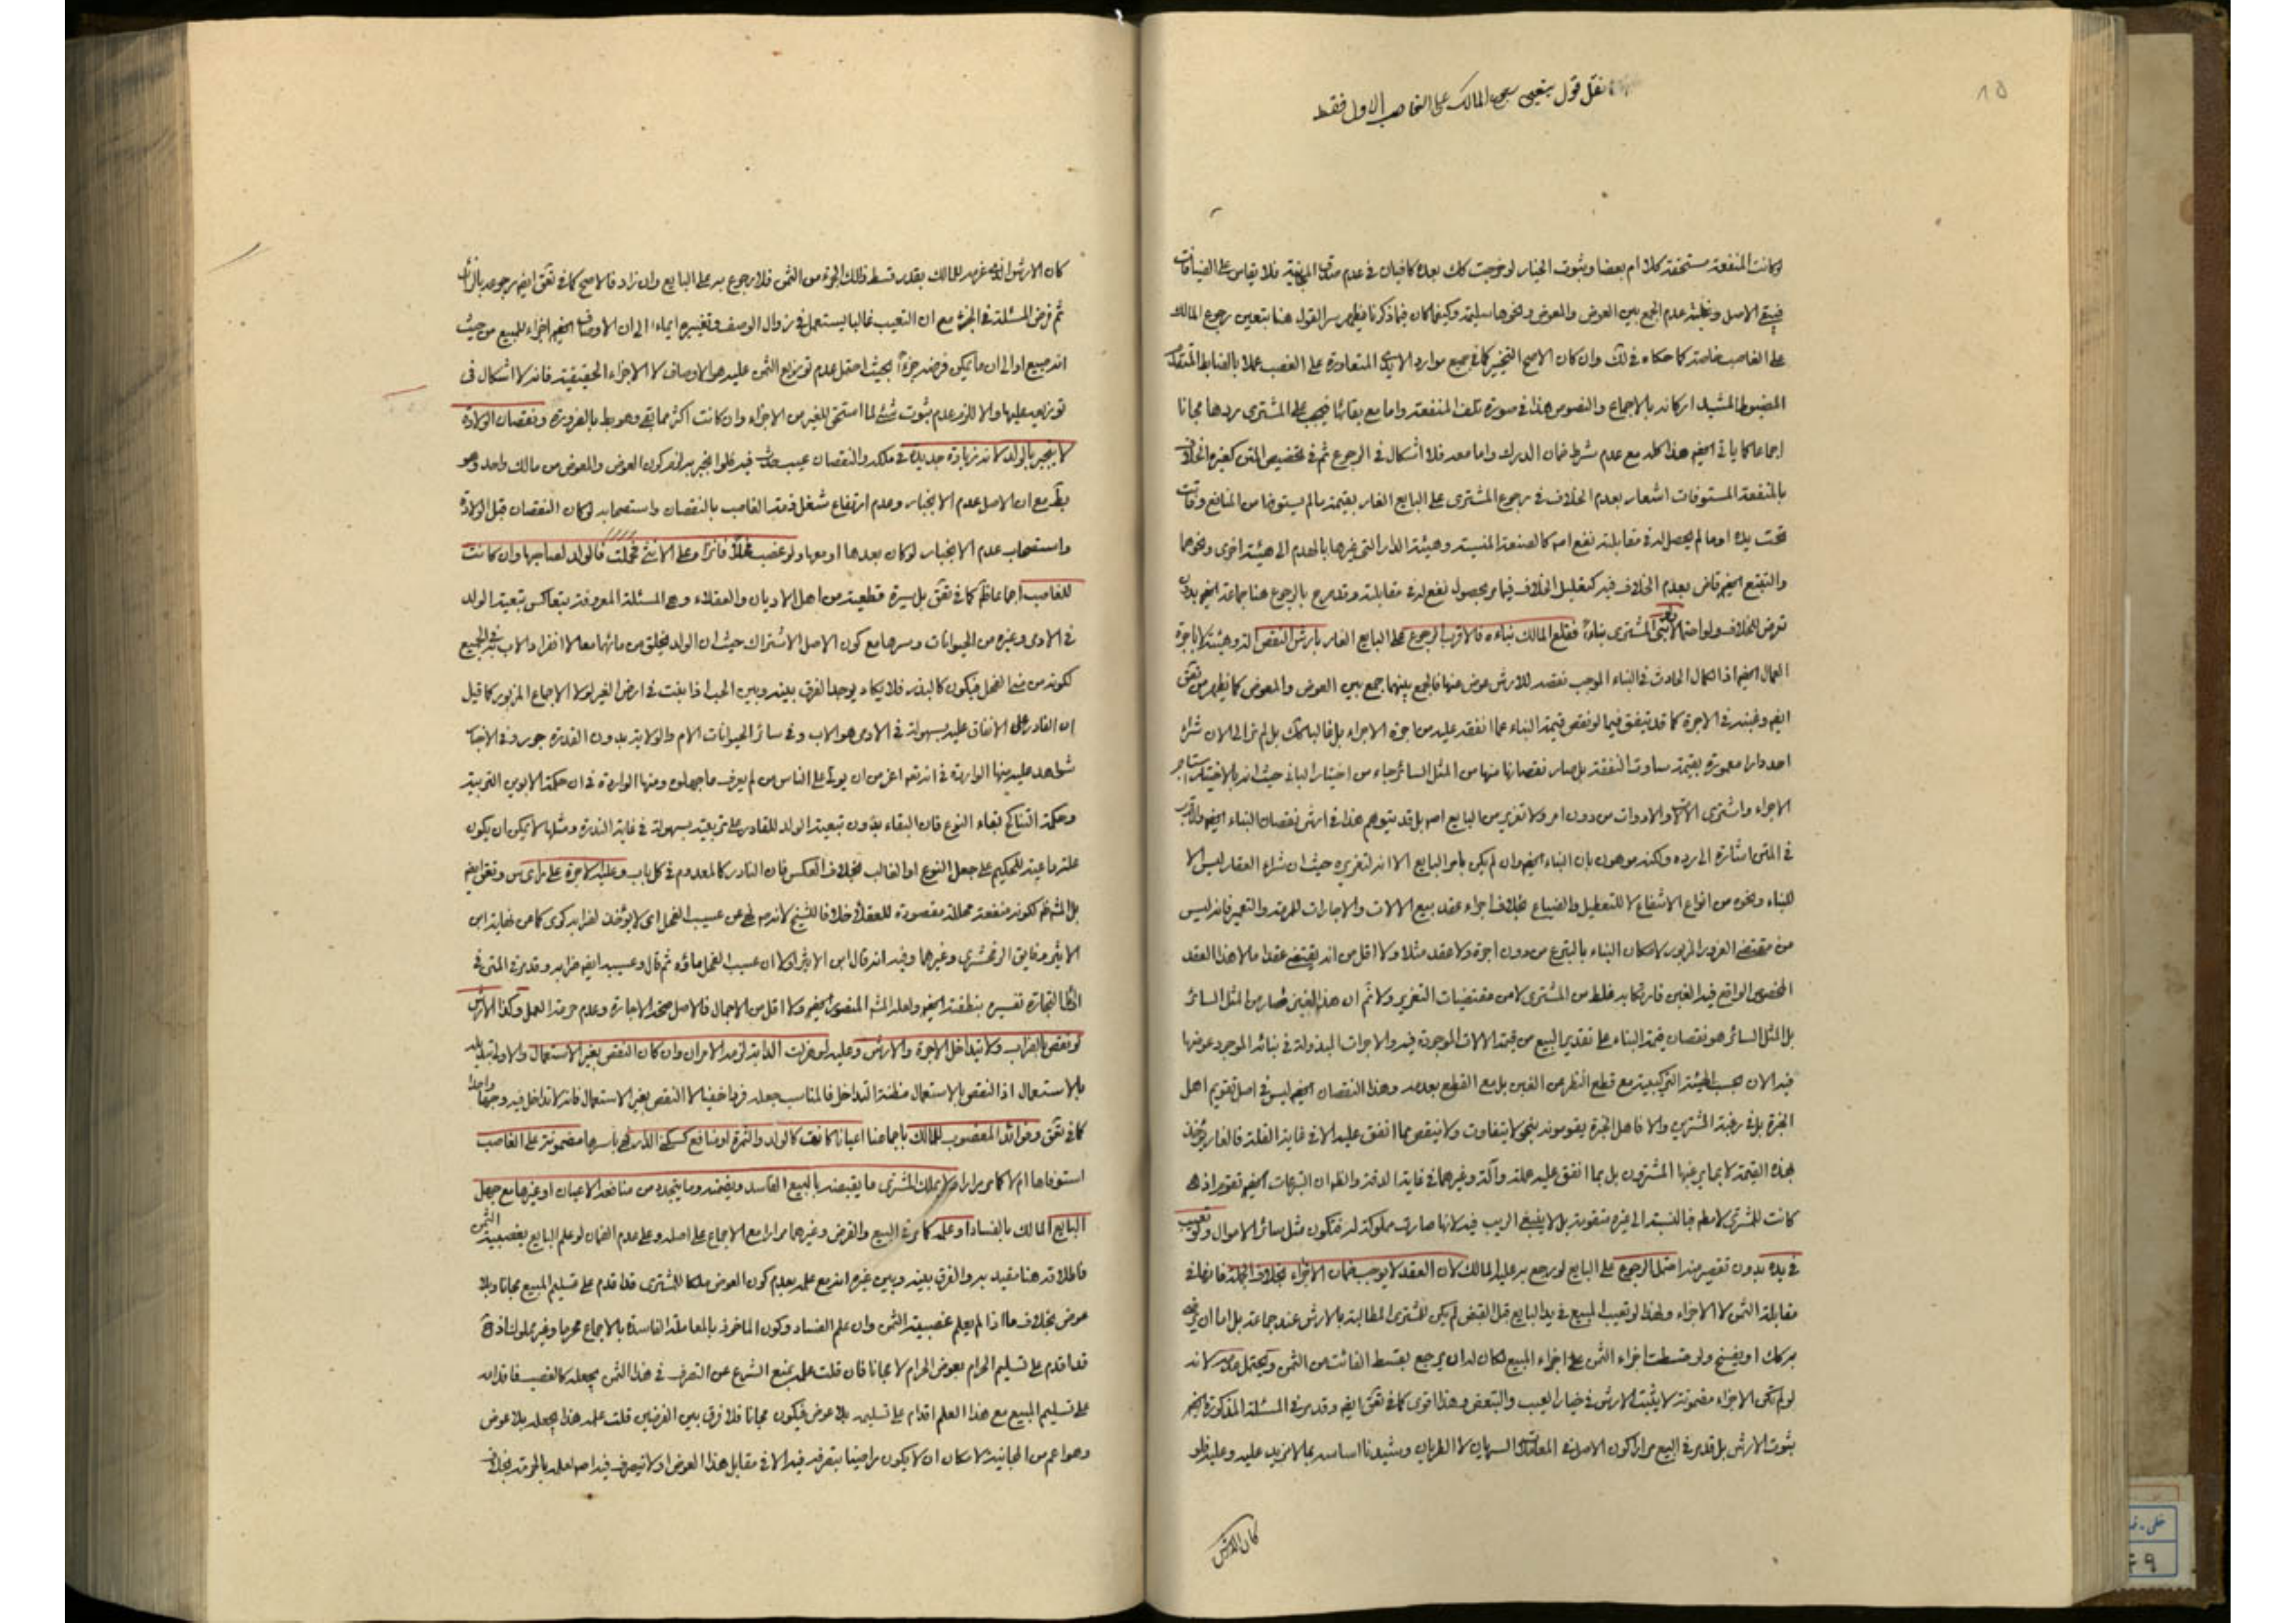 نقل قول بتعين رجوع المالك على الغاصب الاول فقط
١٥
وكانت المنفعة مستحقة كلا ام بعضا وثبوت الخيار لو خرجت كك بعده كافيان في عدم صدق المجانية فلا يقاس على الضيافات
فبقي الاصل وغلبة عدم الجمع بين العوض والمعوض ونحوها سليمة وكيف كان فيما ذكرنا فيظهر سر القول هنا بتعين رجوع المالك
على الغاصب خاصة كما حكاه في لك وان كان الاصح التخيير كما في جميع موارد الايدي المتعاورة على الغصب عملا بالضابط المتقدم
المضبوط المشيد اركانه بالاجماع والنصوص هذا في صورة تلف المنفعة واما مع بقائها فيجب على المشتري ردها مجانا
اجماعا كما يأتي ايضا هذا كله مع عدم شرط ضمان الدرك واما معه فلا اشكال في الرجوع ثم في تخصيص المتن كغيره الخلاف
بالمنفعة المستوفات اشعار بعدم الخلاف في رجوع المشتري على البايع الغار بقيمة ما لم يستوفها من المنافع وفاتت
تحت يده او ما لم يحصل له في مقابلته نفع اصلا كالصنعة المنسية وهيئة الدار التي غيرها بالهدم الى هيئة اخرى ونحوها
والتتبع ايضا قاض بعدم الخلاف فيه كتعليل الخلاف فيما مر بحصول نفع له في مقابلته وتصريح بالرجوع هنا جماعة ايضا بدون
تعرض للخلاف ولو احتمالا ولو بنى المشتري بناء فقلع المالك بناءه فالاقرب الرجوع على البايع الغار بارش النقص
العمال ايضا اذ الكمال الحادث في البناء الموجب نقصه للارش عوض عنها فالجمع بينهما جمع بين العوض والمعوض كما يظهر من تعق
ايضا وغبنه في الاجرة كما قد يتفق فيما لو نقص قيمة البناء عما انفقه عليه من اجرة الاجراء بل غالبا كك بل لم نر الى الان شراء
احد دارا معمورة بقيمة ساوت النفقة بل صار نقصانها منها من المثل السائر جاء من اختيار الباني حيث انه بالاختيار استاجر
الاجراء واشترى الآلات والادوات من دون امر ولا تغرير من البايع اصلا بل قد يتوهم هذا في ارش نقصان البناء ايضا والاقرب
في المتن اشارة الى رده ولكنه موهون بان البناء ايضا وان لم يكن بامر البايع الا انه لتغريره حيث ان شراء العقار ليس الا
للبناء ونحوه من انواع الانتفاع لا للتعطيل والضياع بخلاف اجراء عقد بيع الالات والاجارات للمرمة والتعمير فانه ليس
من مقتضى الغرور المزبور لامكان البناء بالتبرع من دون اجرة ولا عقد مثلا ولا اقل من انه يقتضي عقدا ما لا هذا العقد
المخصوص الواقع فيه الغبن فارتكابه غلط من المشتري لا من مقتضيات التغرير ولا ثم ان هذا الغبن فصار من المثل السائر
بل المثل السائر هو نقصان قيمة البناء على تقدير البيع من قيمة الالات الموجودة فيه والاجرات المبذولة في بنائه الموجود عوضها
فيه الان بحسب الهيئة التركيبية مع قطع النظر عن الغبن بل مع القطع بعدمه وهذا النقصان ايضا ليس في اصل تقويم اهل
الخبرة بل في رغبة المشتري والا فاهل الخبرة يقومونه بنحو لا يتفاوت ولا ينقص مما انفق عليه الا في غاية القلة فالغار يؤخذ
بهذه القيمة لا بما يرغبها المشترون بل بما انفق عليه عملة وآلة وغيرهما في غاية الدقة والظ ان التبرعات ايضا تقوم اذ هي
كانت للمشتري لا مطم فبالنسبة الى غيره متقومة بل لا ينبغي الريب فيه لانها صارت مملوكة له فتكون مثل سائر الاموال ولو تعيب
في يده بدون تقصير منه احتمل الرجوع على البايع لو رجع به عليه المالك لان العقد لا يوجب ضمان الاجزاء بخلاف الجملة فانها في
مقابلة الثمن لا الاجزاء ولهذا لو تعيب المبيع في يد البايع قبل القبض لم يكن للمشتري المطالبة بالارش عند جماعة بل اما ان يرضى
به كك او يفسخ ولو قسطت اجزاء الثمن على اجزاء المبيع لكان له ان يرجع بقسط الفائت من الثمن ويحتمل عدمه لانه
لو لم تكن الاجزاء مضمونة لا يثبت الارش في خيار العيب والتبعض وهذا اقوى كما في تعق ايضا وقد مر في المسئلة المذكورة ايضا
ثبوت الارش بل قد مر في البيع مرارا كون الاصل في المعاملات السريان لا الطريان وشيدنا اساسه بما لا مزيد عليه وعليه فلو
كان الارش
كان الارش الذي غرمه للمالك بقدر قسط ذلك الجزء من الثمن فلا رجوع به على البايع وان زاد فالاصح كما في تعق ايضا رجوعه بالزائد
ثم فرض المسئلة في الجزء مع ان التعيب غالبا يستعمل في زوال الوصف وتغييره ايماء الى ان الاوصاف ايضا اجزاء للمبيع من حيث
انه مبيع او الى ان ما يمكن فرضه جزءا بحيث احتمل عدم توزيع الثمن عليه هو الاوصاف لا الاجزاء الحقيقية فانه لا اشكال في
توزيعه عليها والا للزم عدم ثبوت شئ لما استحق للغير من الاجزاء وان كانت اكثر مما بقي وهو بط بالضرورة ونقصان الولادة
لا ينجبر بالولد لانه زيادة جديدة في ملكه والنقصان عيب حدث فيه فلو انجبر به لزم كون العوض والمعوض من مالك واحد وهو
بط مع ان الاصل عدم الانجبار وعدم ارتفاع شغل ذمة الغاصب بالنقصان واستصحابه لو كان النقصان قبل الولادة
واستصحاب عدم الانجبار لو كان بعدها او معها ولو غصب فحلا فانزأه على الانثى فحملت فالولد لصاحبها وان كانت
للغاصب اجماعا ظم كما في تعق بل سيرة قطعية من اهل الاديان والعقلاء وهي المسئلة المعروفة بتعاكس تبعية الولد
في الآدمي وغيره من الحيوانات وسرها مع كون الاصل الاشتراك حيث ان الولد يخلق من مائهما معا لا انفراد الاب في الجميع
لكونه من مني الفحل فيكون كالبذر فلا يكاد يوجد الفرق بينه وبين الحب اذا نبت في ارض الغير لولا الاجماع المزبور كما قيل
ان القادر على الانفاق عليه بسهولة في الآدمي هو الاب وفي سائر الحيوانات الام والولاية بدون القدرة جور وفي الاخبار
شواهد عليه منها الواردة في انه تعم اعز من ان يولي على الناس من لم يعرف ما جهلوه ومنها الواردة في ان حكمة الابوين التربية
وحكمة التناكح لبقاء النوع فان البقاء بدون تبعية الولد للقادر على تربيته بسهولة في غاية الندرة ومثلها لا يمكن ان يكون
علة داعية للحكيم على جعل النوع او الغالب بخلاف العكس فان النادر كالمعدوم في كل باب وعليه الاجرة على رأي س وتعق ايضا
بل المشهور ظم لكونه منفعة محللة مقصودة للعقلاء خلافا للشيخ لانه صم نهى عن عسيب الفحل اي لا يؤخذ لضرابه كرى كما عن نهاية ابن
الاثير وفايق الزمخشري وغيرهما وفيه انه قال ابن الاثير اولا ان عسيب الفحل ماؤه ثم قال وعسيبه ايضا ضرابه وقد مر في المتن في
التجارة تفسيره بنطفته ايضا ولعله المشهور المنصور ايضا ولا اقل من الاجمال فالاصل صحة الاجارة وعدم حرمة العمل وكذا الارش
لو نقص بالضراب ولا تتداخل الاجرة والارش وعليه لو هزلت الدابة لزمه الامران وان كان النقص بغير الاستعمال والاولى تبديله
بالاستعمال اذ النقص بالاستعمال مظنة التداخل فالمناسب جعله فردا خفيا لا النقص بغير الاستعمال فانه لا تداخل فيه وجها واحدا
كما في تعق وفوائد المغصوب للمالك باجماعنا اعيانا كانت كالولد والثمرة او منافع كسكنى الدار فهي باسرها مضمونة على الغاصب
استوفاها ام لا كما مر مرارا ولا يملك المشتري ما يقبضه بالبيع الفاسد ويضمنه وما يتجدد من منافعه الاعيان او غيرها مع جهل
البايع المالك بالفساد او علمه كما مر في البيع والقرض وغيرهما مرارا مع الاجماع على اصله وعلى عدم الضمان لو علم البايع بغصبية الثمن
فاطلاقه هنا مقيد به والفرق بينه وبين غيره انه مع علمه بعدم كون العوض ملكا للمشتري قد اقدم على تسليم المبيع مجانا وبلا
عوض بخلاف ما اذا لم يعلم غصبية الثمن وان علم الفساد وكون الماخوذ بالمعاملة الفاسدة بالاجماع محرما وغير مملوك اذ
قد اقدم على تسليم الحرام بعوض الحرام لا مجانا فان قلت علمه بمنع الشرع عن التصرف في هذا الثمن يجعله كالغصب فاقدامه
على تسليم المبيع مع هذا العلم اقدام على تسليمه بلا عوض فيكون مجانا فلا فرق بين الفرضين قلت علمه هذا يجعله بلا عوض
وهو اعم من المجانية لامكان ان لا يكون راضيا بتصرفه فيه الا في مقابل هذا العوض او لا يتصرف فيه اصلا لعلمه بالحرمة بخلاف